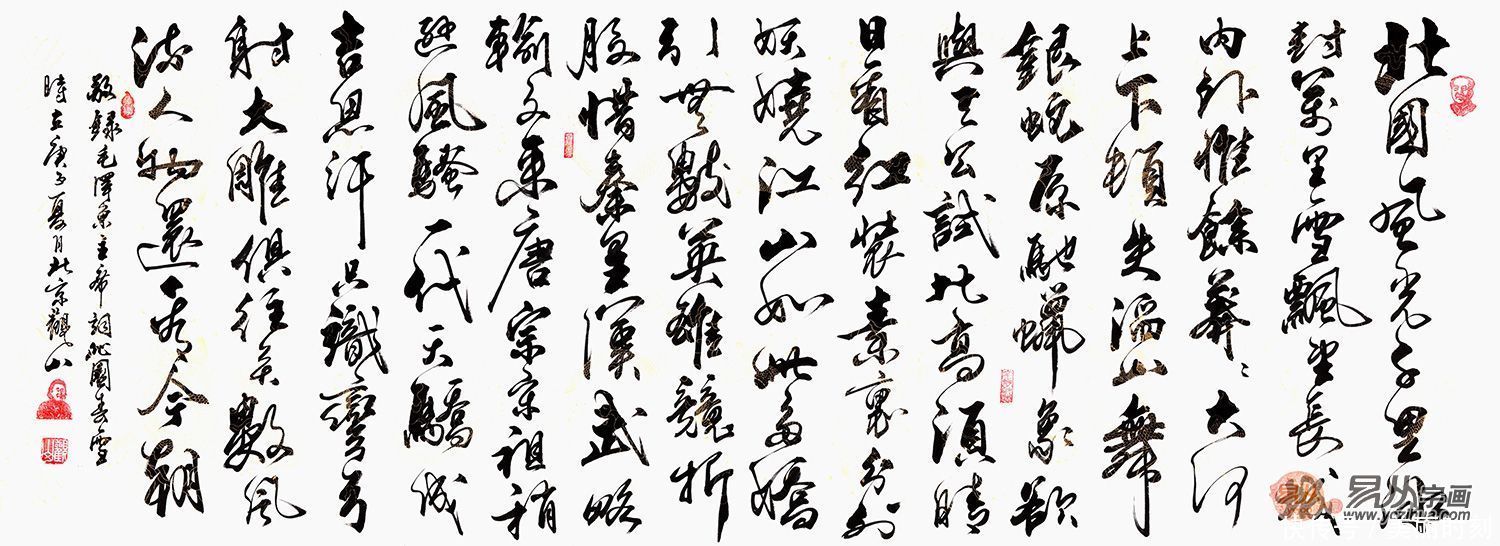 北國風光千里冰
封萬里雪飄望長城
内外惟餘莽々大河
上下頓失滔山舞
銀蛇原馳蠟象欲
與天公試比高須晴
日看紅裝素裹分外
妖嬈江山如此多嬌
引無數英雄競折
腰惜秦皇漢武略
輸文采唐宗宋祖稍
遜風騷一代天驕成
吉思汗只識彎弓
射大雕俱往矣數風
流人物還看今朝
敬録毛澤東主席詞北國春雪
時在庚子夏月北京觀山
易州字画
www.yczihua.com